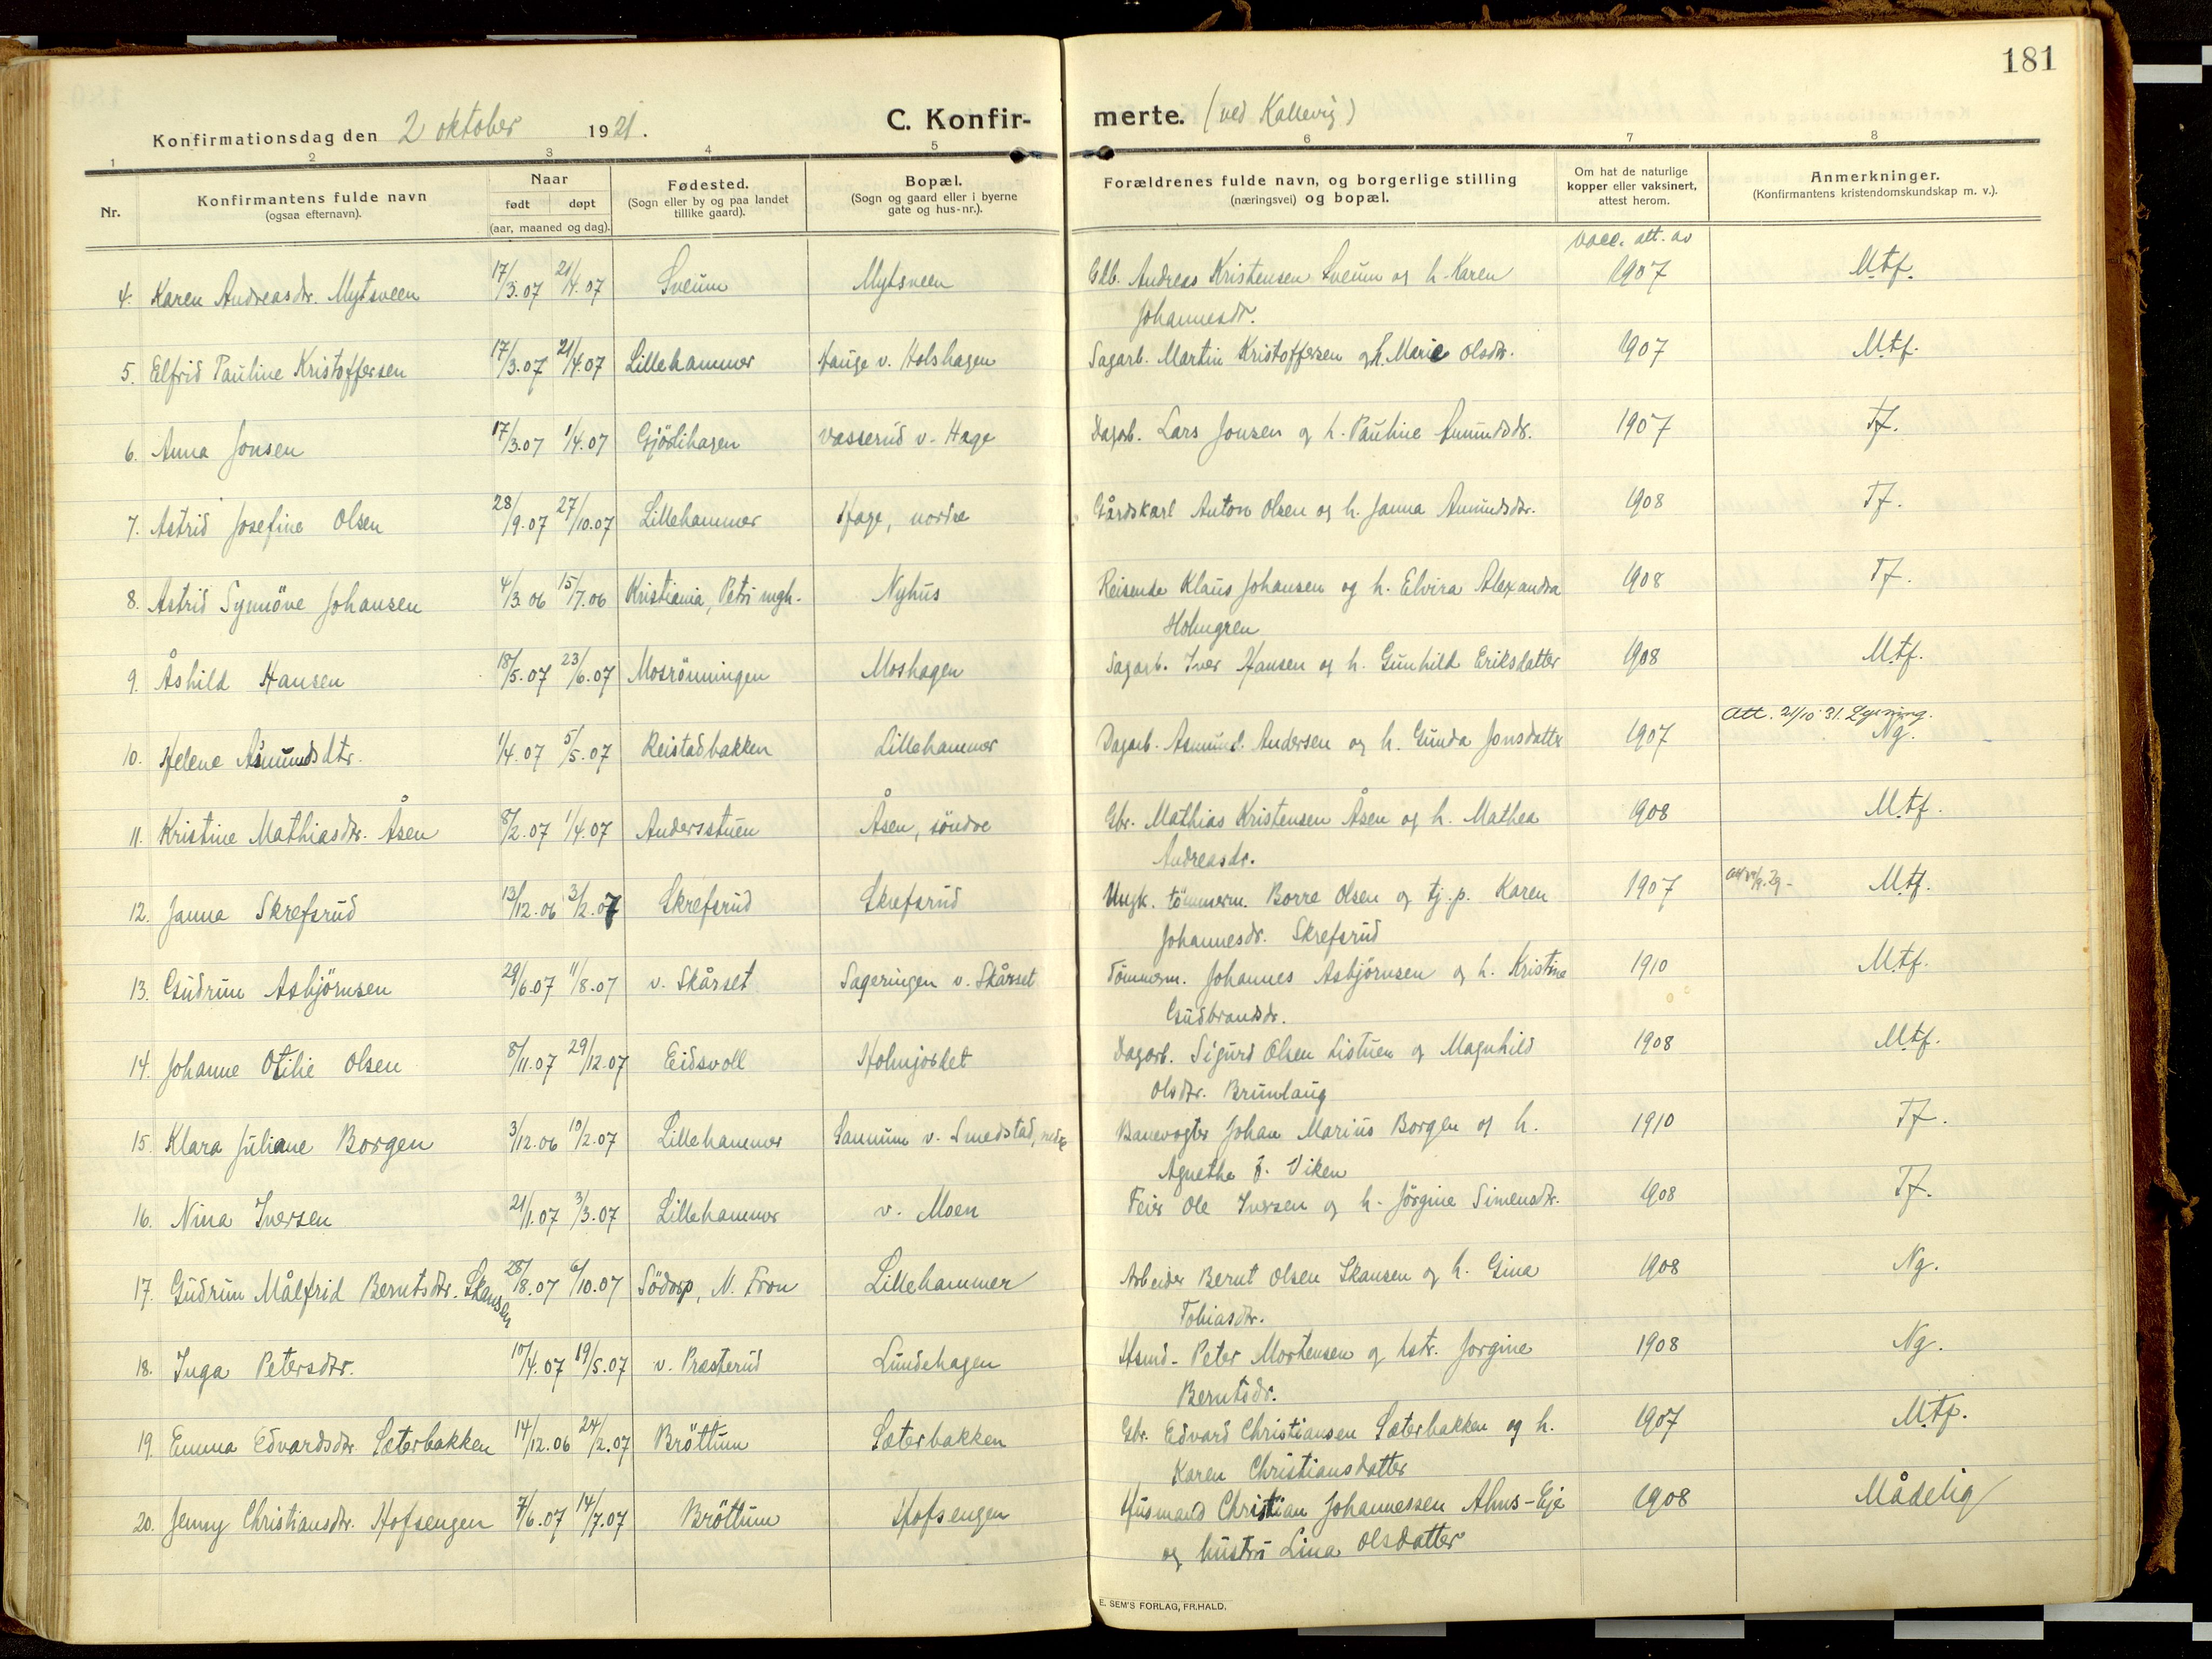 181
Konfirmationsdag den 2 oktober 1921.
C. Konfir-
merte. (ved Kallevig)
1 2 3 4 5 6 7 8
Nr.
Konfirmantens fulde navn
(ogsaa efternavn).
Naar
født døpt
(aar, maaned og dag).
Fødested.
(Sogn eller by og paa landet
tillike gaard).
Bopæl.
(Sogn og gaard eller i byerne
gate og hus-nr.).
Forældrenes fulde navn, og borgerlige stilling
(næringsvei) og bopæl.
Om hat de naturlige
kopper eller vaksinert,
attest herom.
Anmerkninger.
(Konfirmantens kristendomskundskap m. v.).
vacc. att. av
4. Karen Andreasdr. Mytsveen 17/3.07 21/4.07 Sveum Mytsveen Gdb. Andreas Kristensen Sveum og h. Karen 1907 Mtf.
Johannesdr.
5. Elfrid Pauline Kristoffersen 17/3.07 21/4.07 Lillehammer Hauge v. Holshagen Sagarb. Martin Kristoffersen og h. Marie Olsdtr. 1907 Mtf.
6. Anna Jonsen 17/3.07 1/4.07 Gjörlihagen Vasserud v. Hage Dagarb. Lars Jonsen og h. Pauline Amundsdr. 1907 Tf.
7. Astrid Josefine Olsen 28/9.07 27/10.07 Lillehammer Hage, nordre Gårdskarl Anton Olsen og h. Janna Amundsdtr. 1908 Tf.
8. Astrid Synnöve Johansen 4/3.06 15/7.06 Kristiania, Petri mgh. Nyhus Reisende Klaus Johansen og h. Elvira Alexandra 1908 Tf.
Holmgren
9. Åshild Hansen 18/5.07 23/6.07 Mosrönningen Moshagen Sagarb. Iver Hansen og h. Gunhild Eriksdatter 1908 Mtf.
Att. 21/10 31. Lysning.
10. Helene Asmundsdtr. 1/4.07 5/5.07 Reistadbakken Lillehammer Dagarb. Asmund Andersen og h. Gunda Jonsdatter 1907 Ng.
11. Kristine Mathiasdr. Åsen 8/2.07 1/4.07 Andersstuen Åsen, söndre Gbr. Mathias Kristensen Åsen og h. Mathea 1908 Mtf.
Andreasdr.
12. Janna Skrefsrud 13/12.06 3/2.07 Skrefsrud Skrefsrud Ungk. tömmerm. Borre Olsen og tj. p. Karen 1907 Mtf.
Johannesdr. Skrefsrud
13. Gudrun Asbjörnsen 29/6.07 11/8.07 v. Skårset Sageringen v. Skårset Tömmerm. Johannes Asbjörnsen og h. Kristine 1910 Mtf.
Gudbrandsdr.
14. Johanne Otilie Olsen 8/11.07 29/12.07 Eidsvoll Holmjordet Dagarb. Sigurd Olsen Listuen og Magnhild 1908 Mtf.
Olsdtr. Brunlaug
15. Klara Juliane Borgen 3/12.06 10/2.07 Lillehammer Sannum v. Smedstad, nedre Banevogter Johan Marius Borgen og h. 1910 Tf.
Agnethe J. Viken
16. Nina Iversen 21/1.07 3/3.07 Lillehammer v. Moen Feier Ole Iversen og h. Jörgine Simensdtr. 1908 Tf.
17. Gudrun Målfrid Berntsdtr. Skansen 28/8.07 6/10.07 Södorp, N. Fron Lillehammer Arbeider Bernt Olsen Skansen og h. Gina 1908 Ng.
Tobiasdtr.
18. Inga Petersdtr. 10/4.07 19/5.07 v. Præsterud Lundehagen Hsmd. Peter Mortensen og hstr. Jorgine 1908 Ng.
Berntsdr.
19. Emma Edvardsdtr. Sæterbakken 14/12.06 24/2.07 Bröttum Sæterbakken Gbr. Edvard Christiansen Sæterbakken og h. 1907 Mtf.
Karen Christiansdatter
20. Jenny Christiansdtr. Hofsengen 7/6.07 14/7.07 Bröttum Hofsengen Husmand Christian Johannessen Ahus-Eje 1908 Mådelig
og hustru Lina Olsdatter
E. SEM'S FORLAG, FR.HALD.